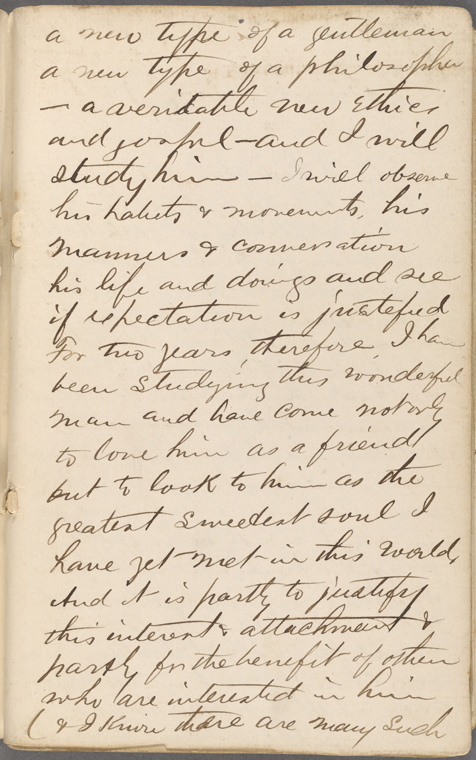 a new type of a gentleman
a new type of a philosopher
— a veritable new Ethics
and gospel — and I will
study him — I will observe
his habits & movements, his
manners & conversation
his life and doings and see
if expectation is justified
For two years, therefore, I have
been studying this wonderful
man and have come not only
to love him as a friend
but to look to him as the
greatest sweetest soul I
have yet met in this world.
And it is partly to justify
this interest & attachment &
partly for the benefit of others
who are interested in him
(& I know there are many such